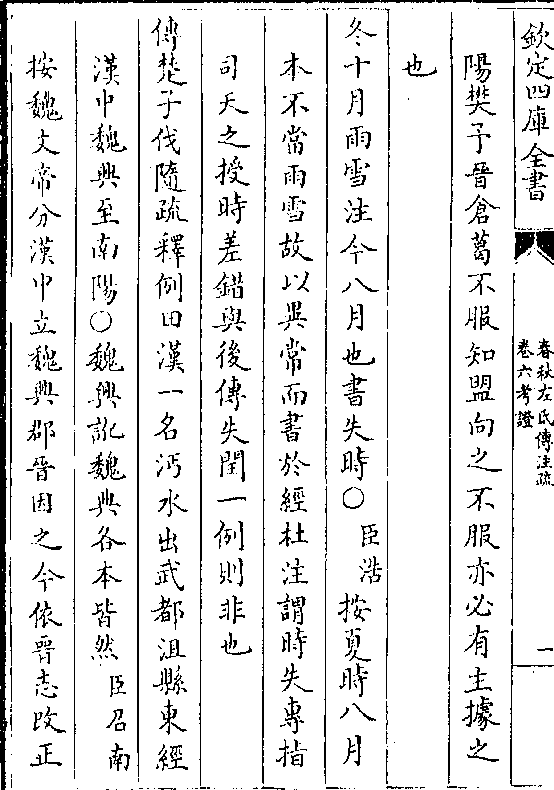 欽定四庫全書
春秋左氏傳注疏
卷六考證
一
陽樊予晉倉葛不服知盟向之不服亦必有主據之
也
冬十月雨雪注今八月也書失時○臣浩按夏時八月
本不當雨雪故以異常而書於經杜注謂時失專指
司天之授時差錯與後傳失閏一例則非也
傳楚子伐隨疏釋例曰漢一名沔水出武都沮縣東經
漢中魏興至南陽○魏興訛魏典各本皆然臣召南
按魏文帝分漢中立魏興郡晉因之今依晉志改正